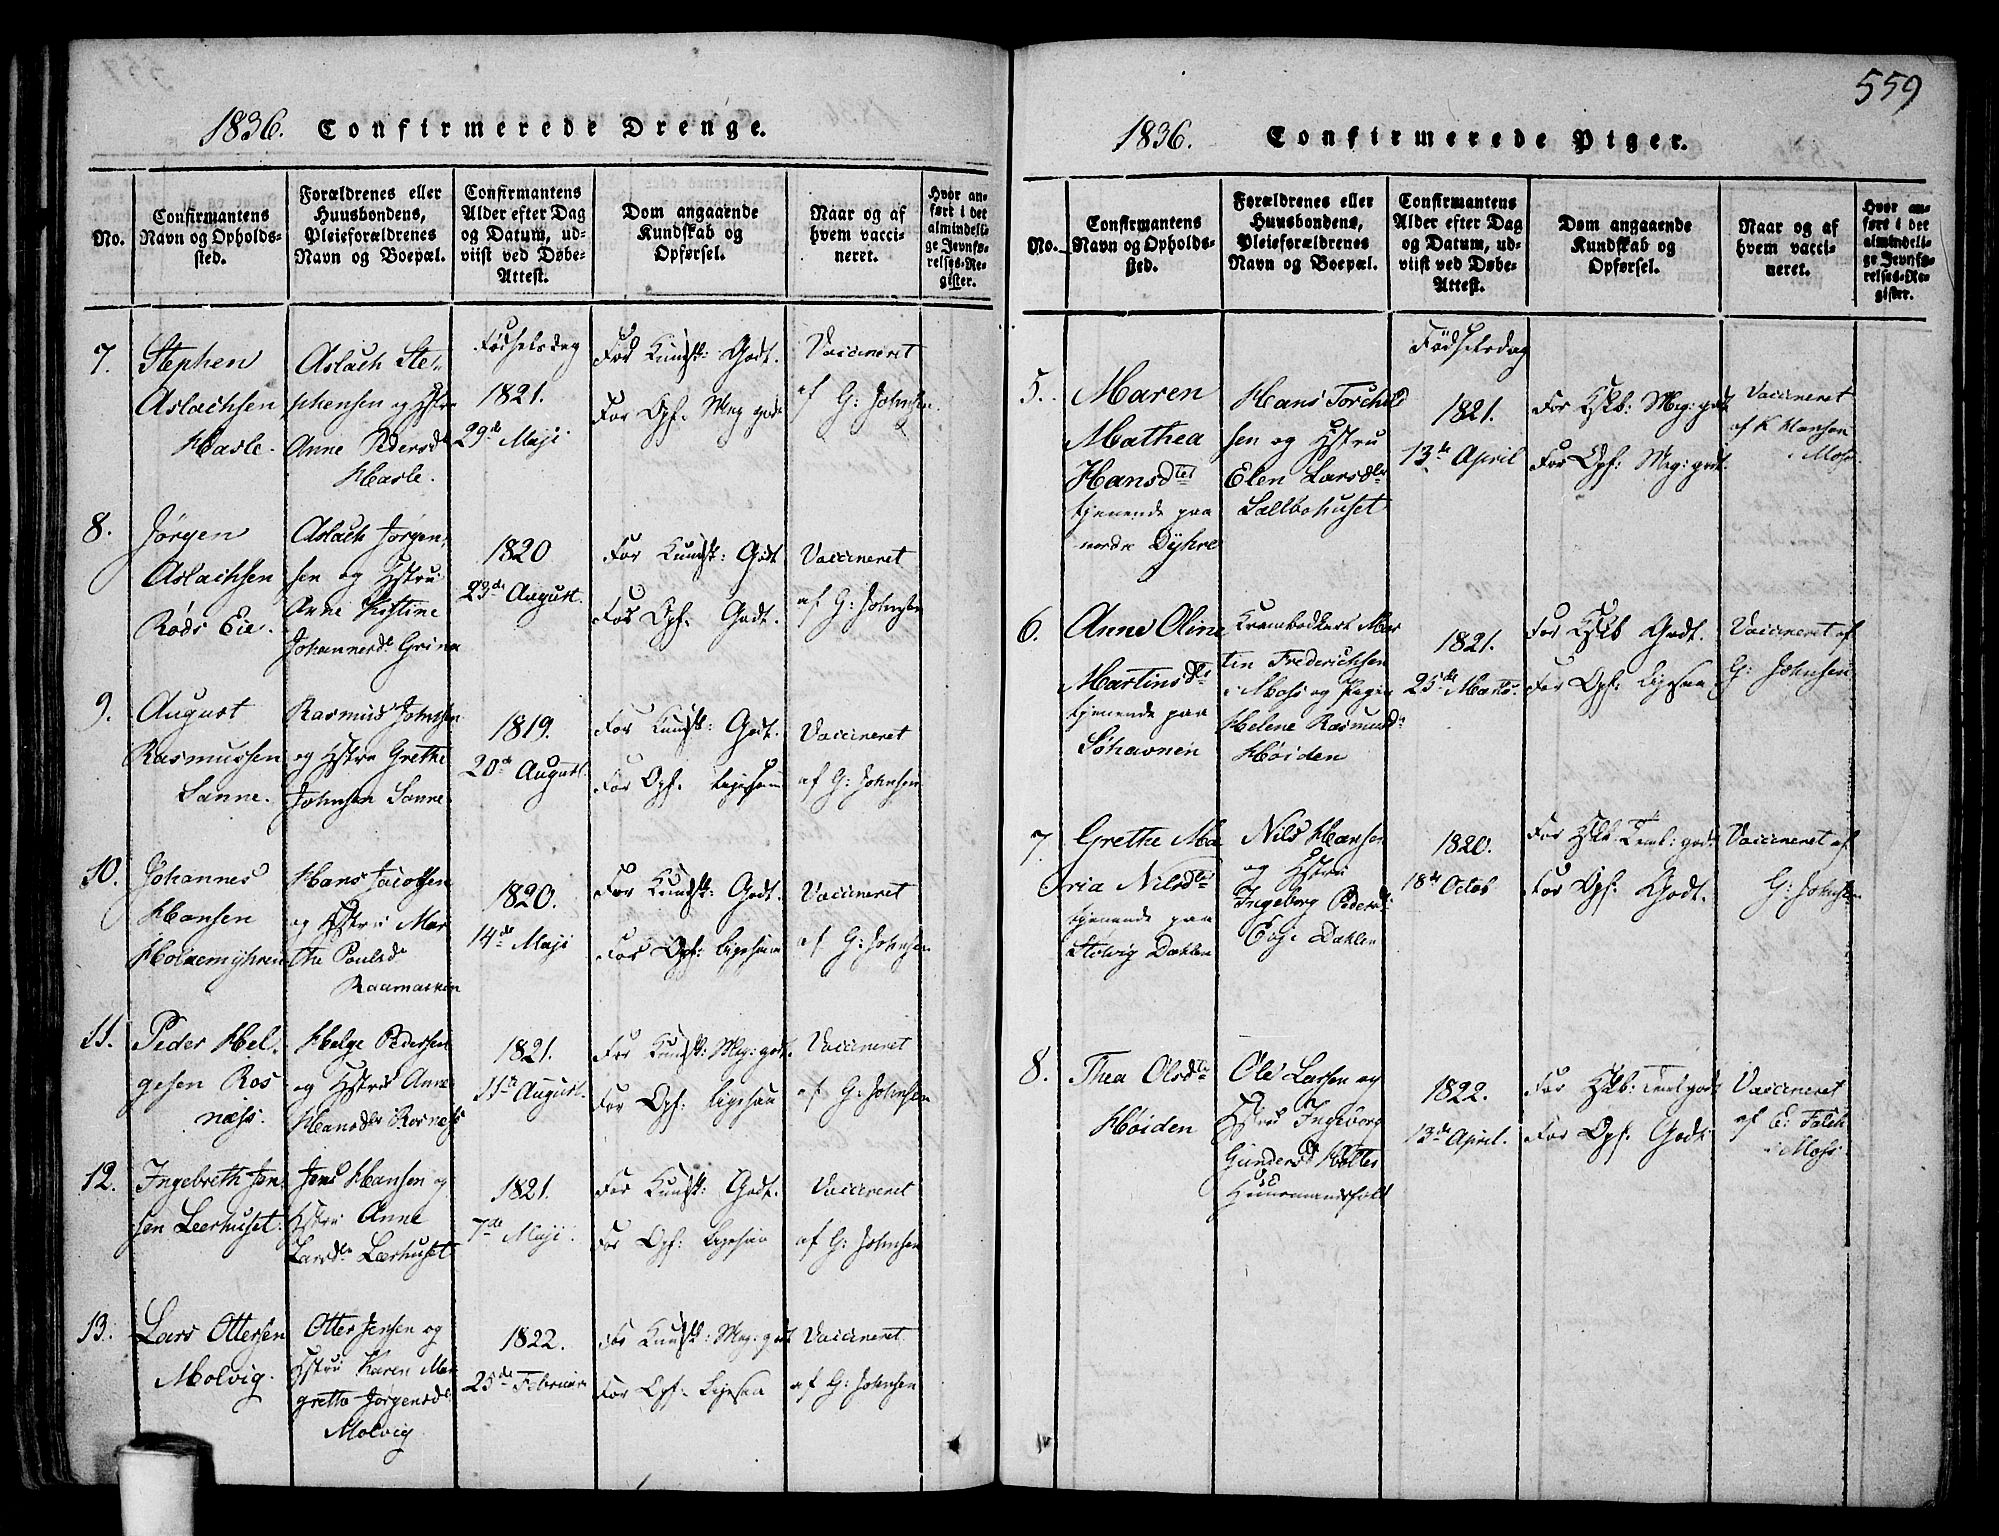 1836. Confirmerede Drenge.
No.
Confirmantens
Navn og Opholds-
sted.
Forældrenes eller
Huusbondens,
Pleieforældrenes
Navn og Boepæl.
Confirmantens
Alder efter Dag
og Datum, ud-
viist ved Døbe-
Attest.
Dom angaaende
Kundskab og
Opførsel.
Naar og af
hvem vacci-
neret.
Hvor an-
ført i det
almindeli-
ge Jevnfø-
relses-Re-
gister.
7.
Stephen
Aslachsen
Hasle.
Aslach Ste-
phensen og Hstru
Anne Pedersd
Hasle.
Fødselsdag
1821.
29de Maji
For Kundsk: Godt.
For Opf. Meg godt
Vaccineret
af G: Johnsen.
8.
Jørgen
Aslachsen
Røds Eie.
Aslach Jørgen-
sen og Hstru
Anne Kistine
Johannesd Grina
1820
23de August.
For Kundsk: Godt
For Opf. Godt.
Vaccineret
af G: Johnsen
9.
August
Rasmussen
Sanne.
Rasmus Johnsen
og Hstru Grethe
Johnsen Sanne.
1819.
20de August.
For Kundsk: Godt.
For Opf. Ligesaa
Vaccineret
af G: Johnsen
10.
Johannes
Hansen
Holaemyhren
Hans Jacobsen
og Hstru Mar
the Poulsd
Raamarken
1820.
14de Maji
For Kundsk: Godt.
For Opf: Ligesaa
Vaccineret
af G: Johnsen
11.
Peder Hel-
gesen Ros
næss.
Helge Pedersen
og Hstru Anne
Hansdtr Rosnæss
1821.
11te August.
For Kundsk: Meg: godt.
For Opf: Ligesaa
Vaccineret
af G: Johnsen
12.
Ingebreth Jen-
sen Leerhuset.
Jens Hansen og
Hstru Anne
Larsdtr Lærhuset
1821.
7de Maji.
For Kundsk: Godt.
For Opf: Ligesaa
Vaccineret
af G: Johnsen
13.
Lars Ottersen
Molvig.
Otter Jensen og
Hstru Karen Mar
grethe Jørgensd
Molvig
1822.
25de Februar
For Kundsk: Meg: godt
For Opf. Ligesaa
Vaccineret
af G: Johnsen
559
1836. Confirmerede Piger.
No.
Confirmantens
Navn og Opholds-
sted.
Forældrenes eller
Huusbondens,
Pleieforældrenes
Navn og Boepæl.
Confirmantens
Alder efter Dag
og Datum, ud-
viist ved Døbe-
Attest.
Dom angaaende
Kundskab og
Opførsel.
Naar og af
hvem vacci-
neret.
Hvor an-
ført i det
almindeli-
ge Jevnfø-
relses-Re-
gister.
5.
Maren
Mathea
Hansdter
tjenende paa
nordre Dyhre
Hans Torchild
sen og Hstru
Elen Larsdtr
Saltbohuset
Fødselsdag
1821.
13de April
For Kskb: Meg: godt
For Opf: Meg: godt.
Vaccineret
af K Hansen
i Moss.
6.
Anne Oline
Martinsdtr
tjenende paa
Søhavnen
Mar
tin Frederichsen
i Moss og Pigen
Helene Rasmusd
Høiden
1821.
25de Marts.
For Kskb Godt.
For Opf: Ligesaa
Vaccineret af
G: Johnsen
7.
Grethe Ma
ria Nilsdtr
tjenende paa
Stolvig Dahlen
Nils Hansen
og Hstru
Ingeborg Pedersd
Evje Dahlen
1820.
18de Octob
For Kskb Teml: godt
For Opf. Godt.
Vaccineret af
G: Johnsen
8.
Thea Olsdtr
Høiden
Ole Larsen og
Hstru Ingeborg
Gundersd Holtes
Huusmandsfolk
1822.
13de April.
For Kskb: Teml godt
For Opf. Godt.
Vaccineret
af E: Falch
i Moss.